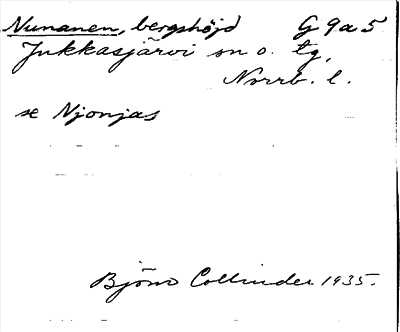 Nunanen, bergshöjd G 9 a 5
Jukkasjärvi sn o. tg,
Norrb. l.
se Njonjas
Björn Collinder 1935.